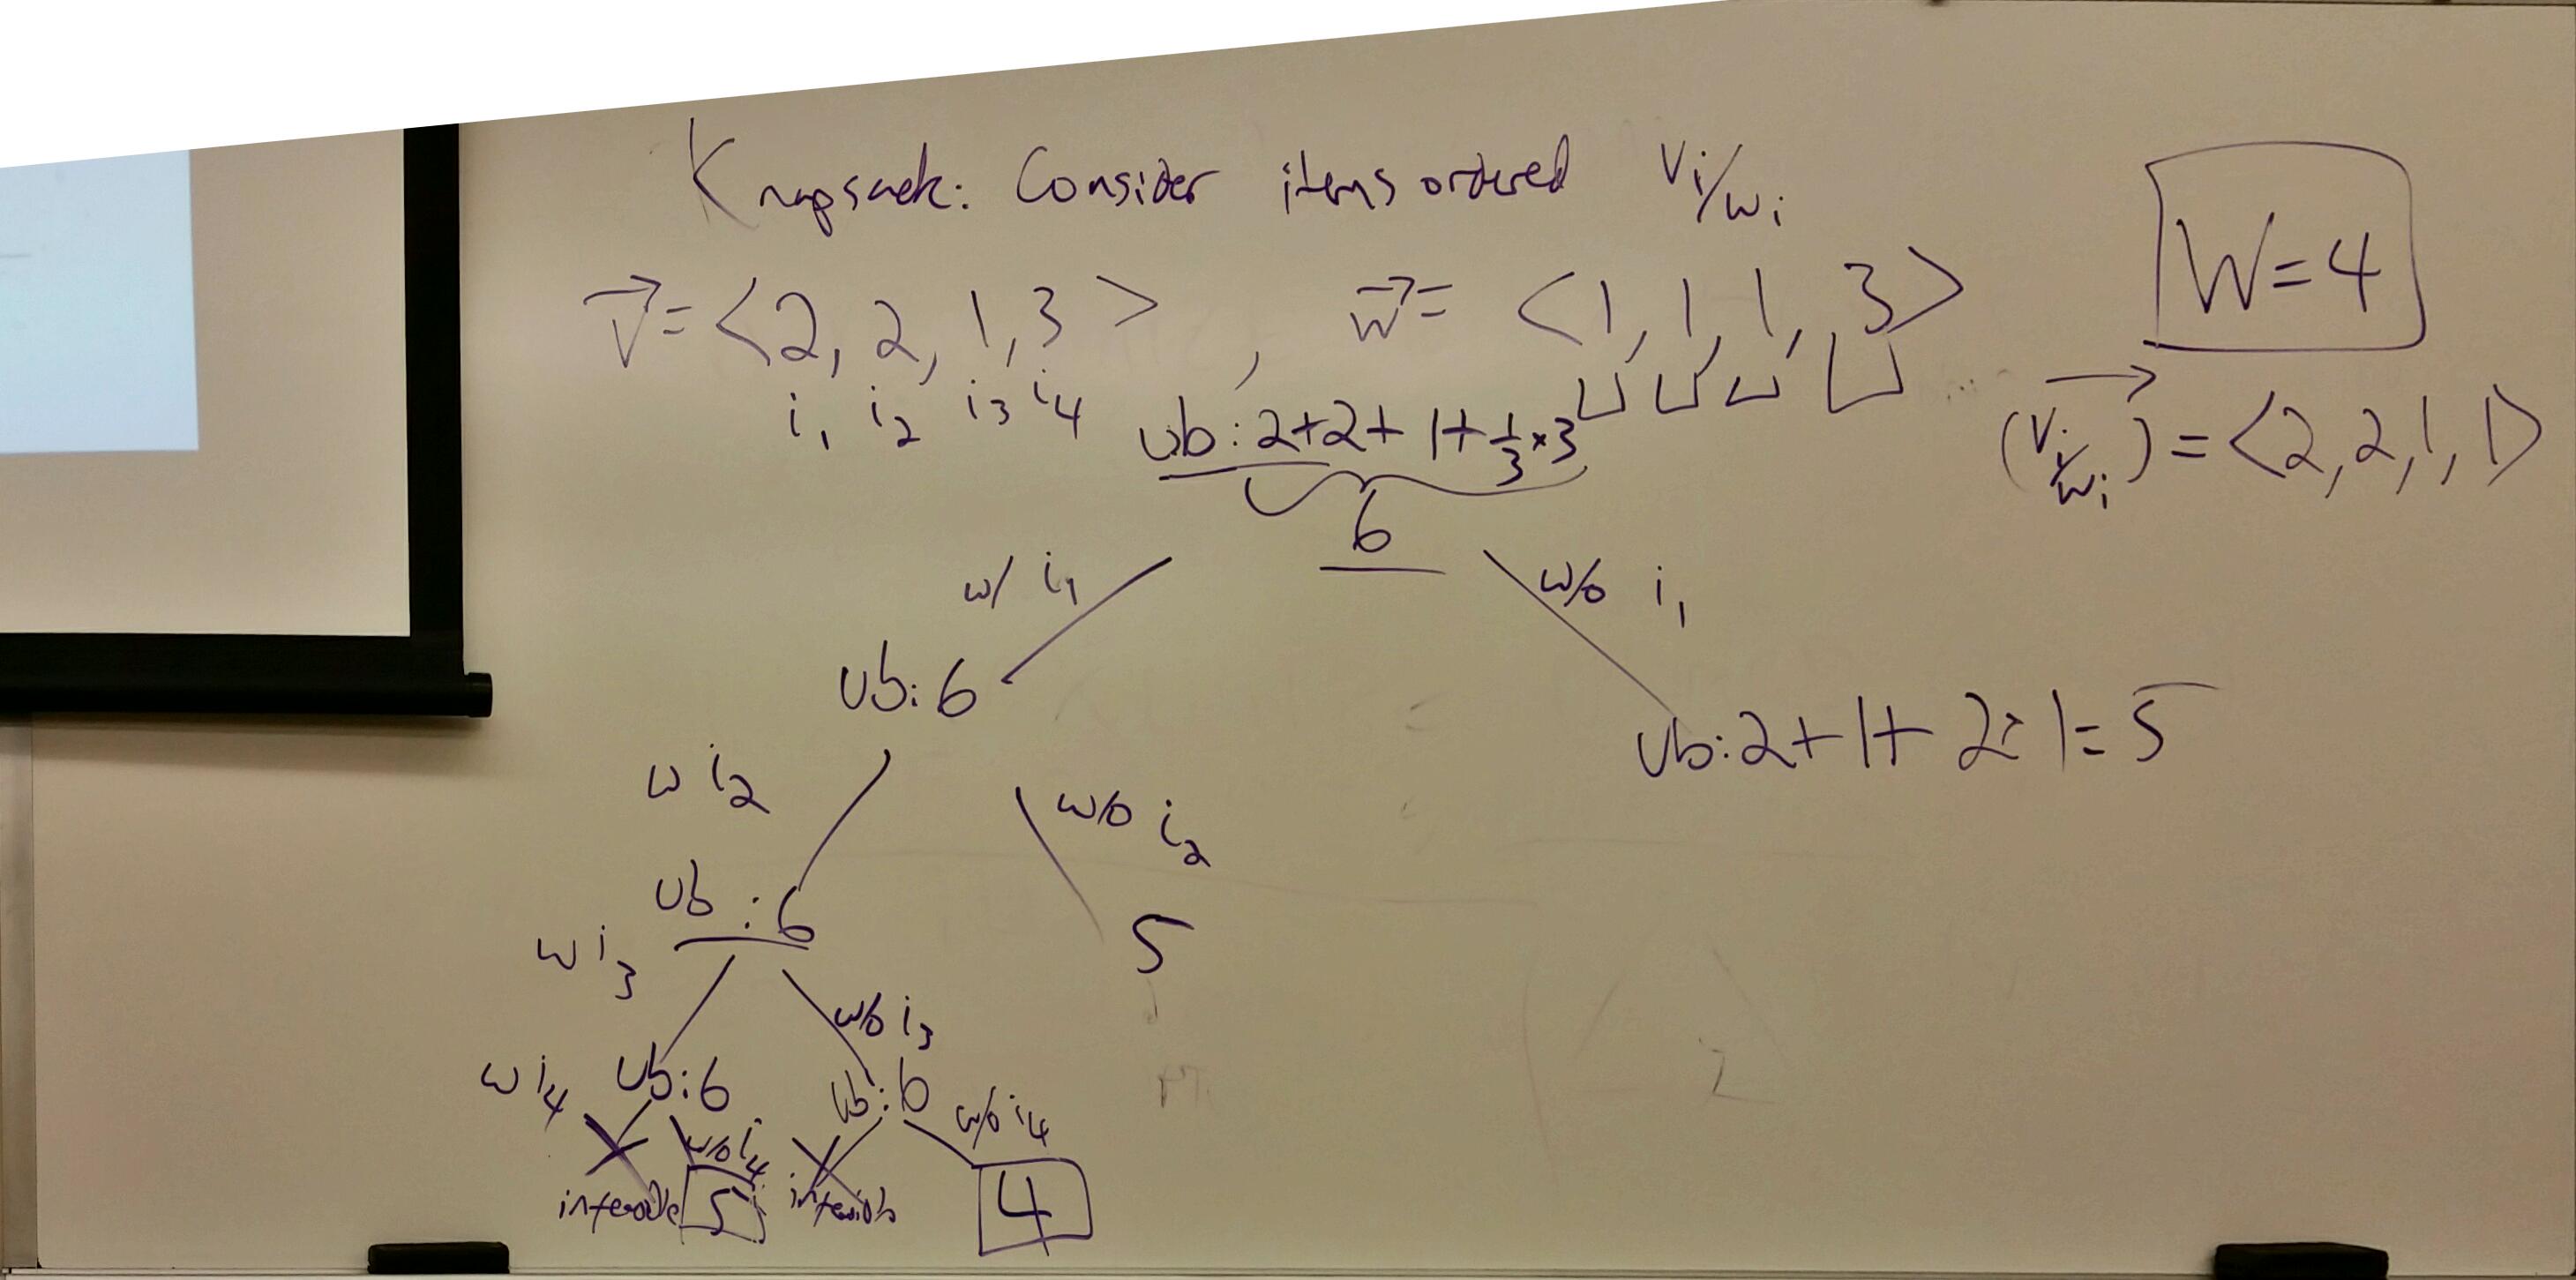 Knapsack: Consider items ordered Vi/wi
V = <2, 2, 1, 3> , w = <1, 1, 1, 3>
W=4
i1 i2 i3 i4
(Vi/wi) = <2, 2, 1, 1>
ub: 2+2+ 1+ 1/3 × 3
6
w/ i1
w/o i1
Ub: 6
Ub: 2+ 1+ 2 1= 5
w i2
w/o i2
Ub : 6
5
w i3
w/o i3
w i4
Ub: 6
Ub: 6
w/o i4
w/o i4
5
4